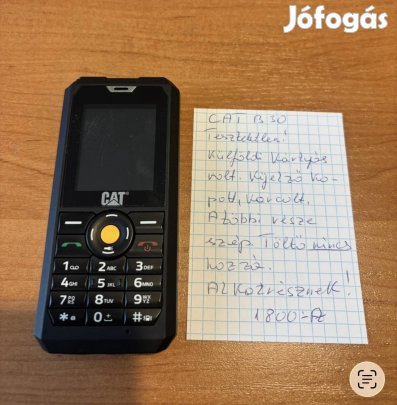 Jófogás
CAT B30
Teszteletlen!
Külföldi kártyás
volt. Kijelző ko-
pott, karcolt.
A többi része
szép. Töltő nincs
hozzá.
Alkatrésznek!
1800-Ft
CAT
1
2 ABC
3 DEF
4 GHI
5 JKL
6 MNO
7 PQRS
8 TUV
9 WXYZ
*
0
#